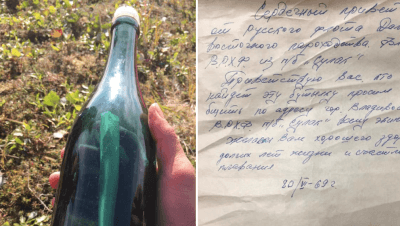 Сердечный привет
от русского флота Даль
восточного пароходства, фл
ВРХФ из п/б "Сулак"
Приветствую Вас, кто
найдет эту бутылку просим
сообщить по адресу гор. Владиво
ВРХФ п/б "Сулак" всему экип
Желаем Вам хорошего здор
долгих лет жизни и счастли
плавания
20/VI-69г